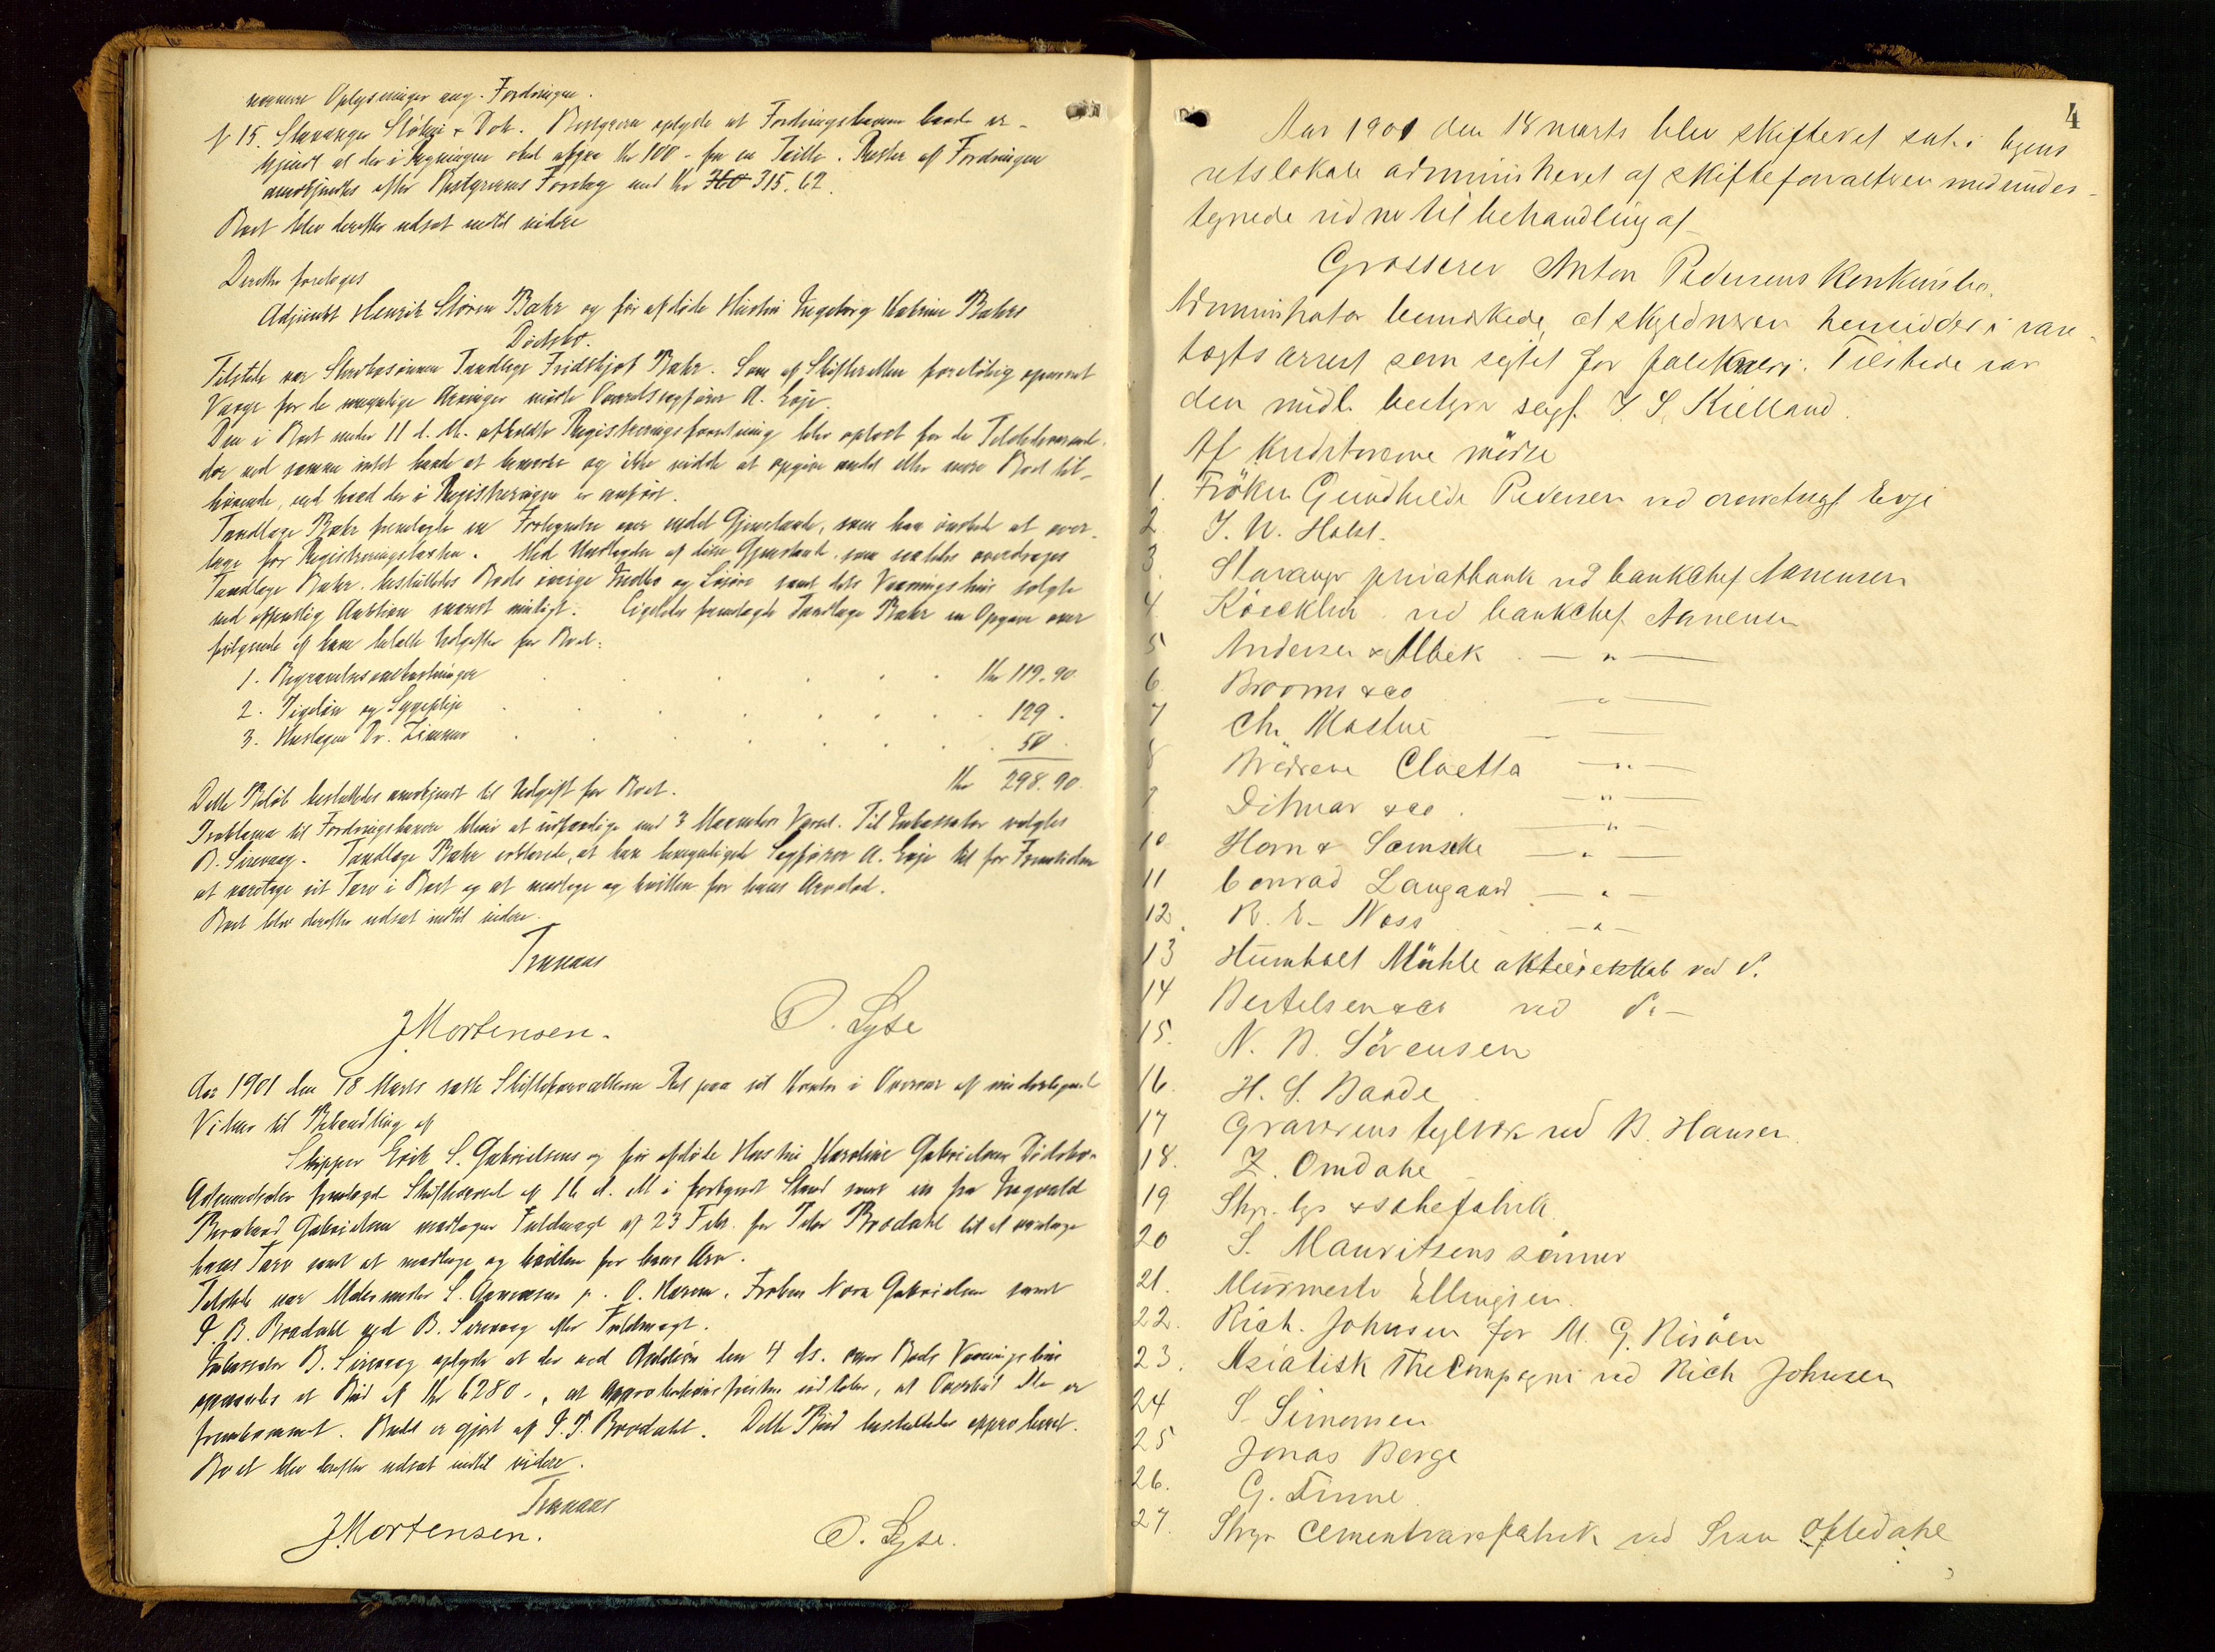 nærmere Oplysninger ang. Fordringen.
№ 15. Stavanger Støberi & Dok. Bestyreren oplyste at Fordringshaveren havde er-
kjendt at der i Regningen skal afgaa Kr 100 - for en Feilt. Resten af Fordringen
anerkjendtes efter Bestyrerens Forslag med Kr 315.62
Boet blev derefter udsat indtil videre
Derefter foretoges
Adjunkt Henrik Støren Bahr og før afdøde Hustru Ingeborg Katrine Bahrs
Dødsbo.
Tilstede var Sterbosønnen Tandlæge Fridthjof Bahr. Som af Skifteretten foreløbig opnævnt
Værge for de umyndige Arvinger mødte Overretssagfører A. Eyje.
Den i Boet under 11 d. M. afholdte Registreringsforretning blev oplæst for de Tilstedeværende
der ved samme intet havde at bemærke og ikke vidste at opgive andet eller mere Boet til-
hørende, end hvad der i Registreringen er anført.
Tandlæge Bahr fremlagde en Fortegnelse over endel Gjenstande, som han ønskede at over-
tage for Registreringstaxten. Med Undtagelse af disse Gjenstande som saaledes overdrages
Tandlæge Bahr, besluttedes Boets øvrige Indbo og Løsøre samt dets Vaaningshus solgte
ved offentlig Auktion snarest muligt. Ligeledes fremlagde Tandlæge Bahr en Opgave over
følgende af ham betalte Udgifter for Boet:
1. Begravelsesomkostninger Kr 119.90
2. Pigeløn og Sygepleje 129.
3. Huslægen Dr. 50.
Kr 298.90.
Dette Beløb besluttedes anerkjendt til Udgift for Boet.
Proklama til Fordringshavere bliver at udfærdige med 3 Maaneders Varsel. Til Inkassator valgtes
B. Sirevaag. Tandlæge Bahr erklærede, at han bemyndigede Sagfører A. Eyje til for Fremtiden
at varetage sit Tarv i Boet og at modtage og kvittere for hans Arvelod.
Boet blev derefter udsat indtil videre.
Tranaas
J Mortensen. O. Lyse
Aar 1901 den 18 Marts satte Skifteforvalteren Ret paa sit Kontor i Overvær af undertegnede
Vidner til Behandling af
Skipper Erik S. Gabrielsens og før afdøde Hustru Karoline Gabrielsens Dødsbo.
fremlagde Skiftevarsel af 16 d. M i forkyndt Stand samt en fra Ingvald
Bernhard Gabrielsen modtagen Fuldmagt af 23 Febr. for Peder Brodahl til at varetage
hans Tarv samt at modtage og kvittere for hans Arv.
Tilstede var Malermester S. p. O. Frøken Nora Gabrielsen samt
P. B. Brodahl ved B. Sirevaag efter Fuldmagt.
Inkassator B. Sirevaag oplyste at der ved Auktion den 4 ds. over Boets Vaaningshus
opnaaedes et Bud af Kr 6280 -, at Approbationsfristen udløber, at Overbud ikke er
fremkommet. Budet er gjort af P. B. Brodahl. Dette Bud besluttedes approberet.
Boet blev derefter udsat indtil videre.
Tranaas
J Mortensen. O. Lyse.
4
Aar 1901 den 18 marts blev skifteret sat i byens
retslokale administreret af skifteforvalteren med under-
tegnede vidner til behandling af
Grosserer Anton Pedersens Konkursbo.
Administrator bemærkede, at skyldneren hensidder i vare-
tægtsarrest som sigtet for falskneri. Tilstede var
den midl. bestyrer sagf. J S. Kielland.
Af Kreditorerne mødte
1. Frøken Gundhilde Pedersen ved overretssagf. Evje
2. J. W. Holst.
3. Stavanger privatbank ved bankchef Aanensen
4. Køsckler ved bankchef Aanensen
5 Andersen & Albek — " —
6. Brooms & co — " —
7 Chr. Mastue — —
8 Brødrene Cloetta — " —
9. Ditmar & co. — " —
10. Horn & Samsøe — " —
11 Conrad Langaard — " —
12. R. E. Noss — " —
13 Humbolt Mühle aktieselskab ved do.
14 Bertelsen & co ved do —
15. N. B. Sörensen
16. H. S. Baade
17 Graverens teglverk ved B. Hansen.
18. Z. Omdahl
19 Stvgr. lys & sæbefabrik.
20 S. Mauritzens sønner
21. Murmester Ellingsen.
22. Rich. Johnsen for M. G. Risøen
23. Asiatisk The Compagni ved Rich Johnsen
24 S. Simonsen
25 Jonas Berge
26. G. Finne.
27. Stvgr cementvarefabrik ved Svan Oftedahl